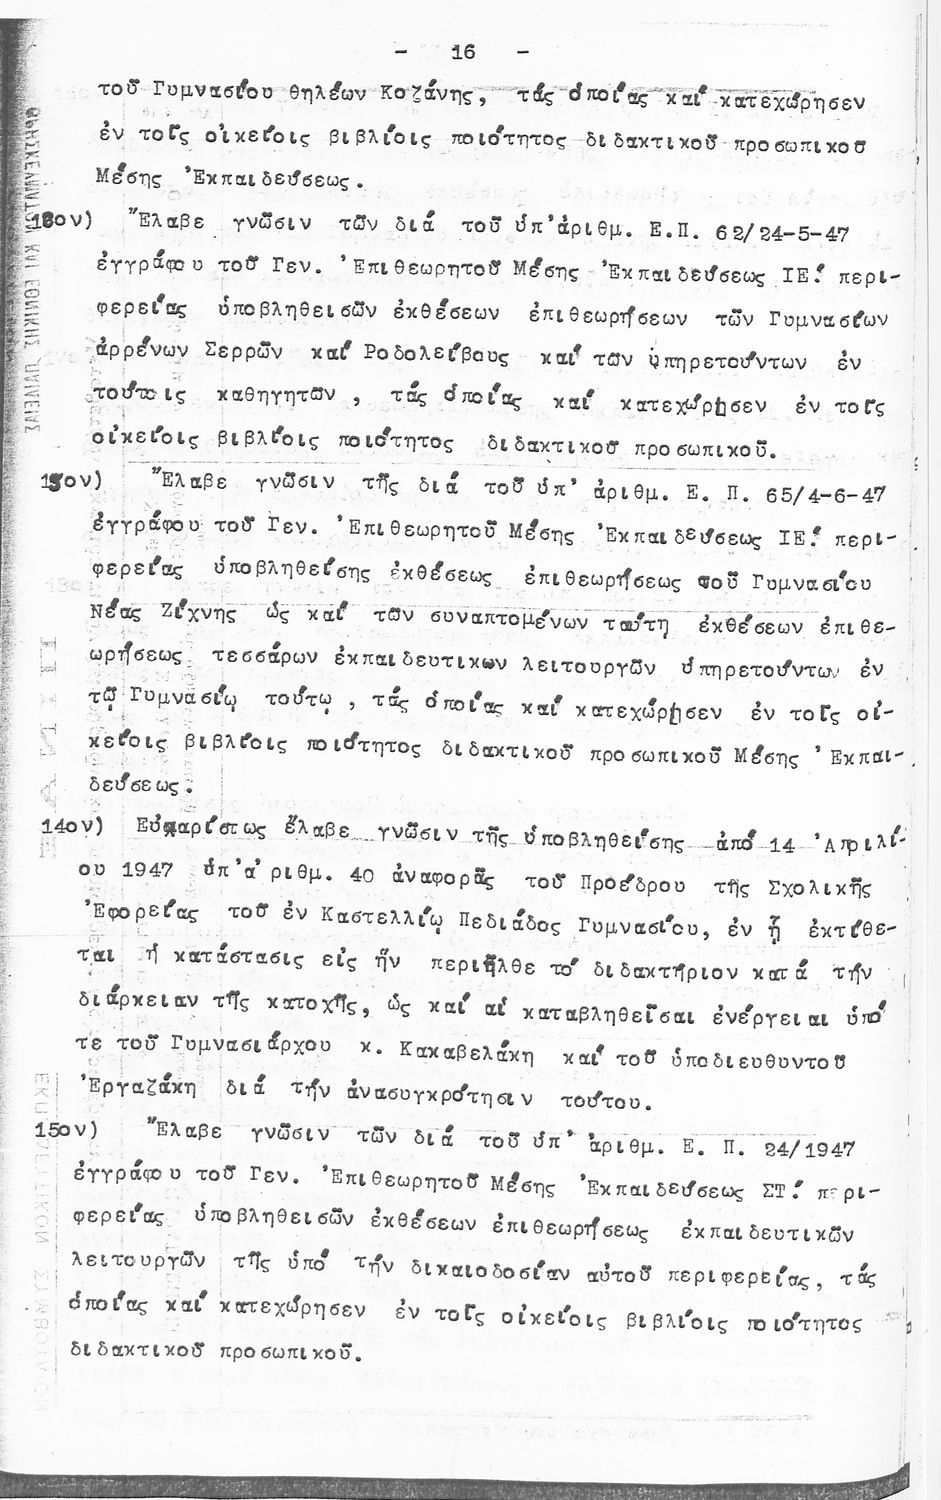 - 16 -
τοῦ Γυμνασίου θηλέων Κοζάνης, τάς ὁποίας καί κατεχώρησεν
ἐν τοῖς οἰκείοις βιβλίοις ποιότητος διδακτικοῦ προσωπικοῦ
Μέσης Ἐκπαιδεύσεως.
Ἔλαβε γνῶσιν τῶν διά τοῦ ὑπ' ἀριθμ. Ε.Π. 62/24-5-47
ἐγγράφου τοῦ Γεν. Ἐπιθεωρητοῦ Μέσης Ἐκπαιδεύσεως ΙΕ! περι-
φερείας ὑποβληθεισῶν ἐκθέσεων ἐπιθεωρήσεων τῶν Γυμνασίων
ἀρρένων Σερρῶν καί Ροδολείβους καί τῶν ὑπηρετούντων ἐν
τούτοις καθηγητῶν, τάς ὁποίας καί κατεχώρησεν ἐν τοῖς
οἰκείοις βιβλίοις ποιότητος διδακτικοῦ προσωπικοῦ.
Ἔλαβε γνῶσιν τῆς διά τοῦ ὑπ' ἀριθμ. Ε. Π. 65/4-6-47
ἐγγράφου τοῦ Γεν. Ἐπιθεωρητοῦ Μέσης Ἐκπαιδεύσεως ΙΕ! περι-
φερείας ὑποβληθείσης ἐκθέσεως ἐπιθεωρήσεως τοῦ Γυμνασίου
Νέας Ζίχνης ὡς καί τῶν συναπτομένων ταύτῃ ἐκθέσεων ἐπιθε-
ωρήσεως τεσσάρων ἐκπαιδευτικων λειτουργῶν ὑπηρετούντων ἐν
τῷ Γυμνασίῳ τούτῳ, τάς ὁποίας καί κατεχώρησεν ἐν τοῖς οἰ-
κείοις βιβλίοις ποιότητος διδακτικοῦ προσωπικοῦ Μέσης Ἐκπαι-
δεύσεως.
14ον) Εὐχαρίστως ἔλαβε γνῶσιν τῆς ὑποβληθείσης ἀπό 14 Ἀπριλί-
ου 1947 ὑπ' ἀριθμ. 40 ἀναφορᾶς τοῦ Προέδρου τῆς Σχολικῆς
Ἐφορείας τοῦ ἐν Καστελλίῳ Πεδιάδος Γυμνασίου, ἐν ᾗ ἐκτίθε-
ται ἡ κατάστασις εἰς ἥν περιῆλθε τό διδακτήριον κατά τήν
διάρκειαν τῆς κατοχῆς, ὡς καί αἱ καταβληθεῖσαι ἐνέργειαι ὑπό
τε τοῦ Γυμνασιάρχου κ. Κακαβελάκη καί τοῦ ὑποδιευθυντοῦ
Ἐργαζάκη διά τήν ἀνασυγκρότησιν τούτου.
15ον) Ἔλαβε γνῶσιν τῶν διά τοῦ ὑπ' ἀριθμ. Ε. Π. 24/1947
ἐγγράφου τοῦ Γεν. Ἐπιθεωρητοῦ Μέσης Ἐκπαιδεύσεως ΣΤ! περι-
φερείας ὑποβληθεισῶν ἐκθέσεων ἐπιθεωρήσεως ἐκπαιδευτικῶν
λειτουργῶν τῆς ὑπό τήν δικαιοδοσίαν αὐτοῦ περιφερείας, τάς
ὁποίας καί κατεχώρησεν ἐν τοῖς οἰκείοις βιβλίοις ποιότητος
διδακτικοῦ προσωπικοῦ.